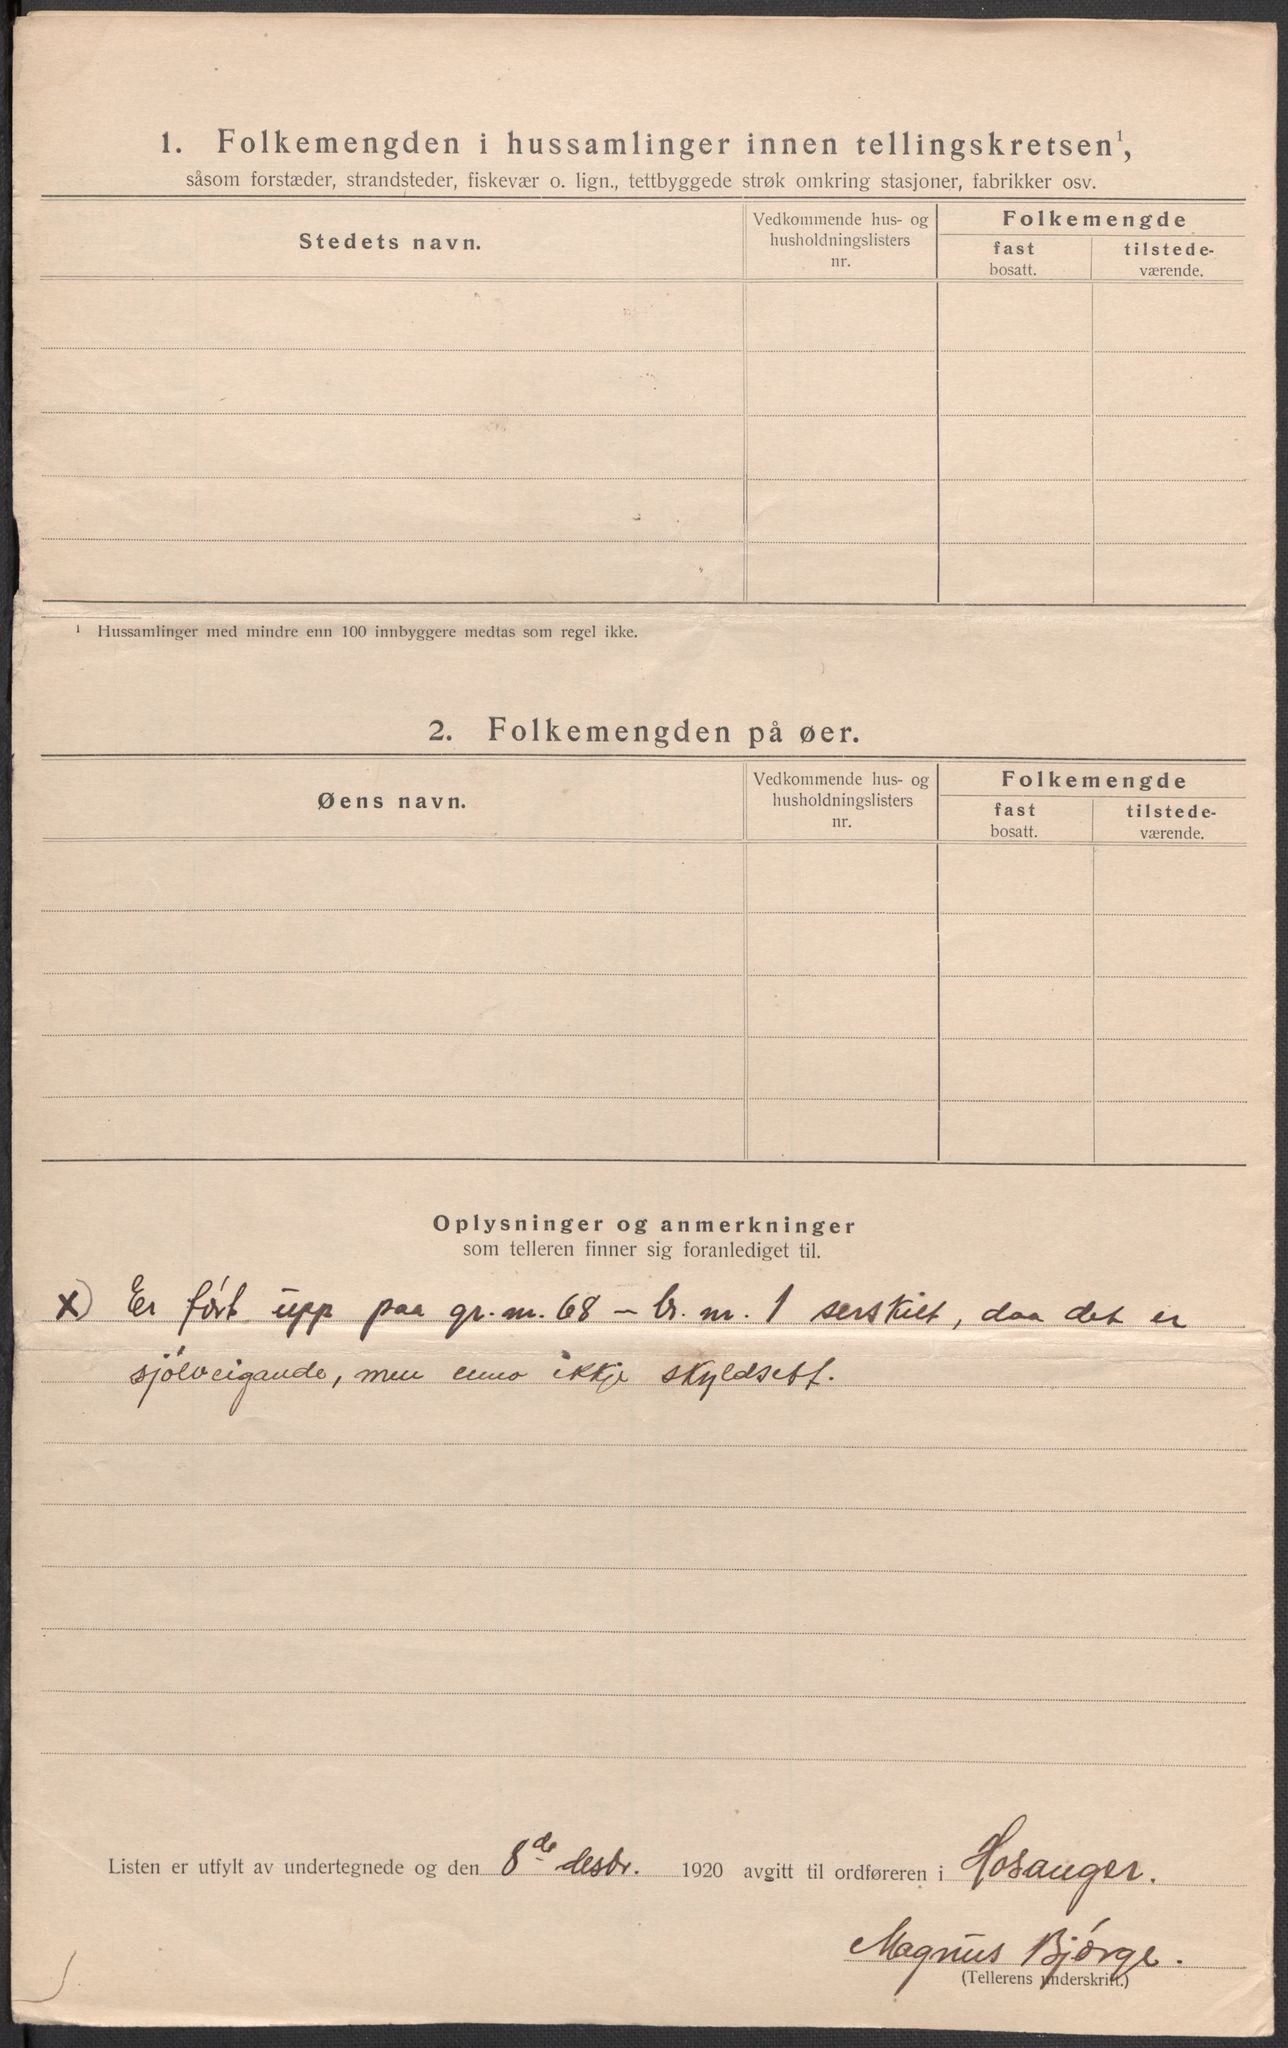 1. Folkemengden i hussamlinger innen tellingskretsen¹,
såsom forstæder, strandsteder, fiskevær o. lign., tettbyggede strøk omkring stasjoner, fabrikker osv.
Stedets navn.
Vedkommende hus- og
husholdningslisters
nr.
Folkemengde
fast
bosatt.
tilstede-
værende.
¹ Hussamlinger med mindre enn 100 innbyggere medtas som regel ikke.
2. Folkemengden på øer.
Øens navn.
Vedkommende hus- og
husholdningslisters
nr.
Folkemengde
fast
bosatt.
tilstede-
værende.
Oplysninger og anmerkninger
som telleren finner sig foranlediget til.
x) Er ført upp paa gr. nr. 68 – br. nr. 1 serskilt, daa det er
sjølveigande, men enno ikkje skyldsett.
Listen er utfylt av undertegnede og den 8de desbr. 1920 avgitt til ordføreren i Hosanger.
Magnus Bjørge.
(Tellerens underskrift.)